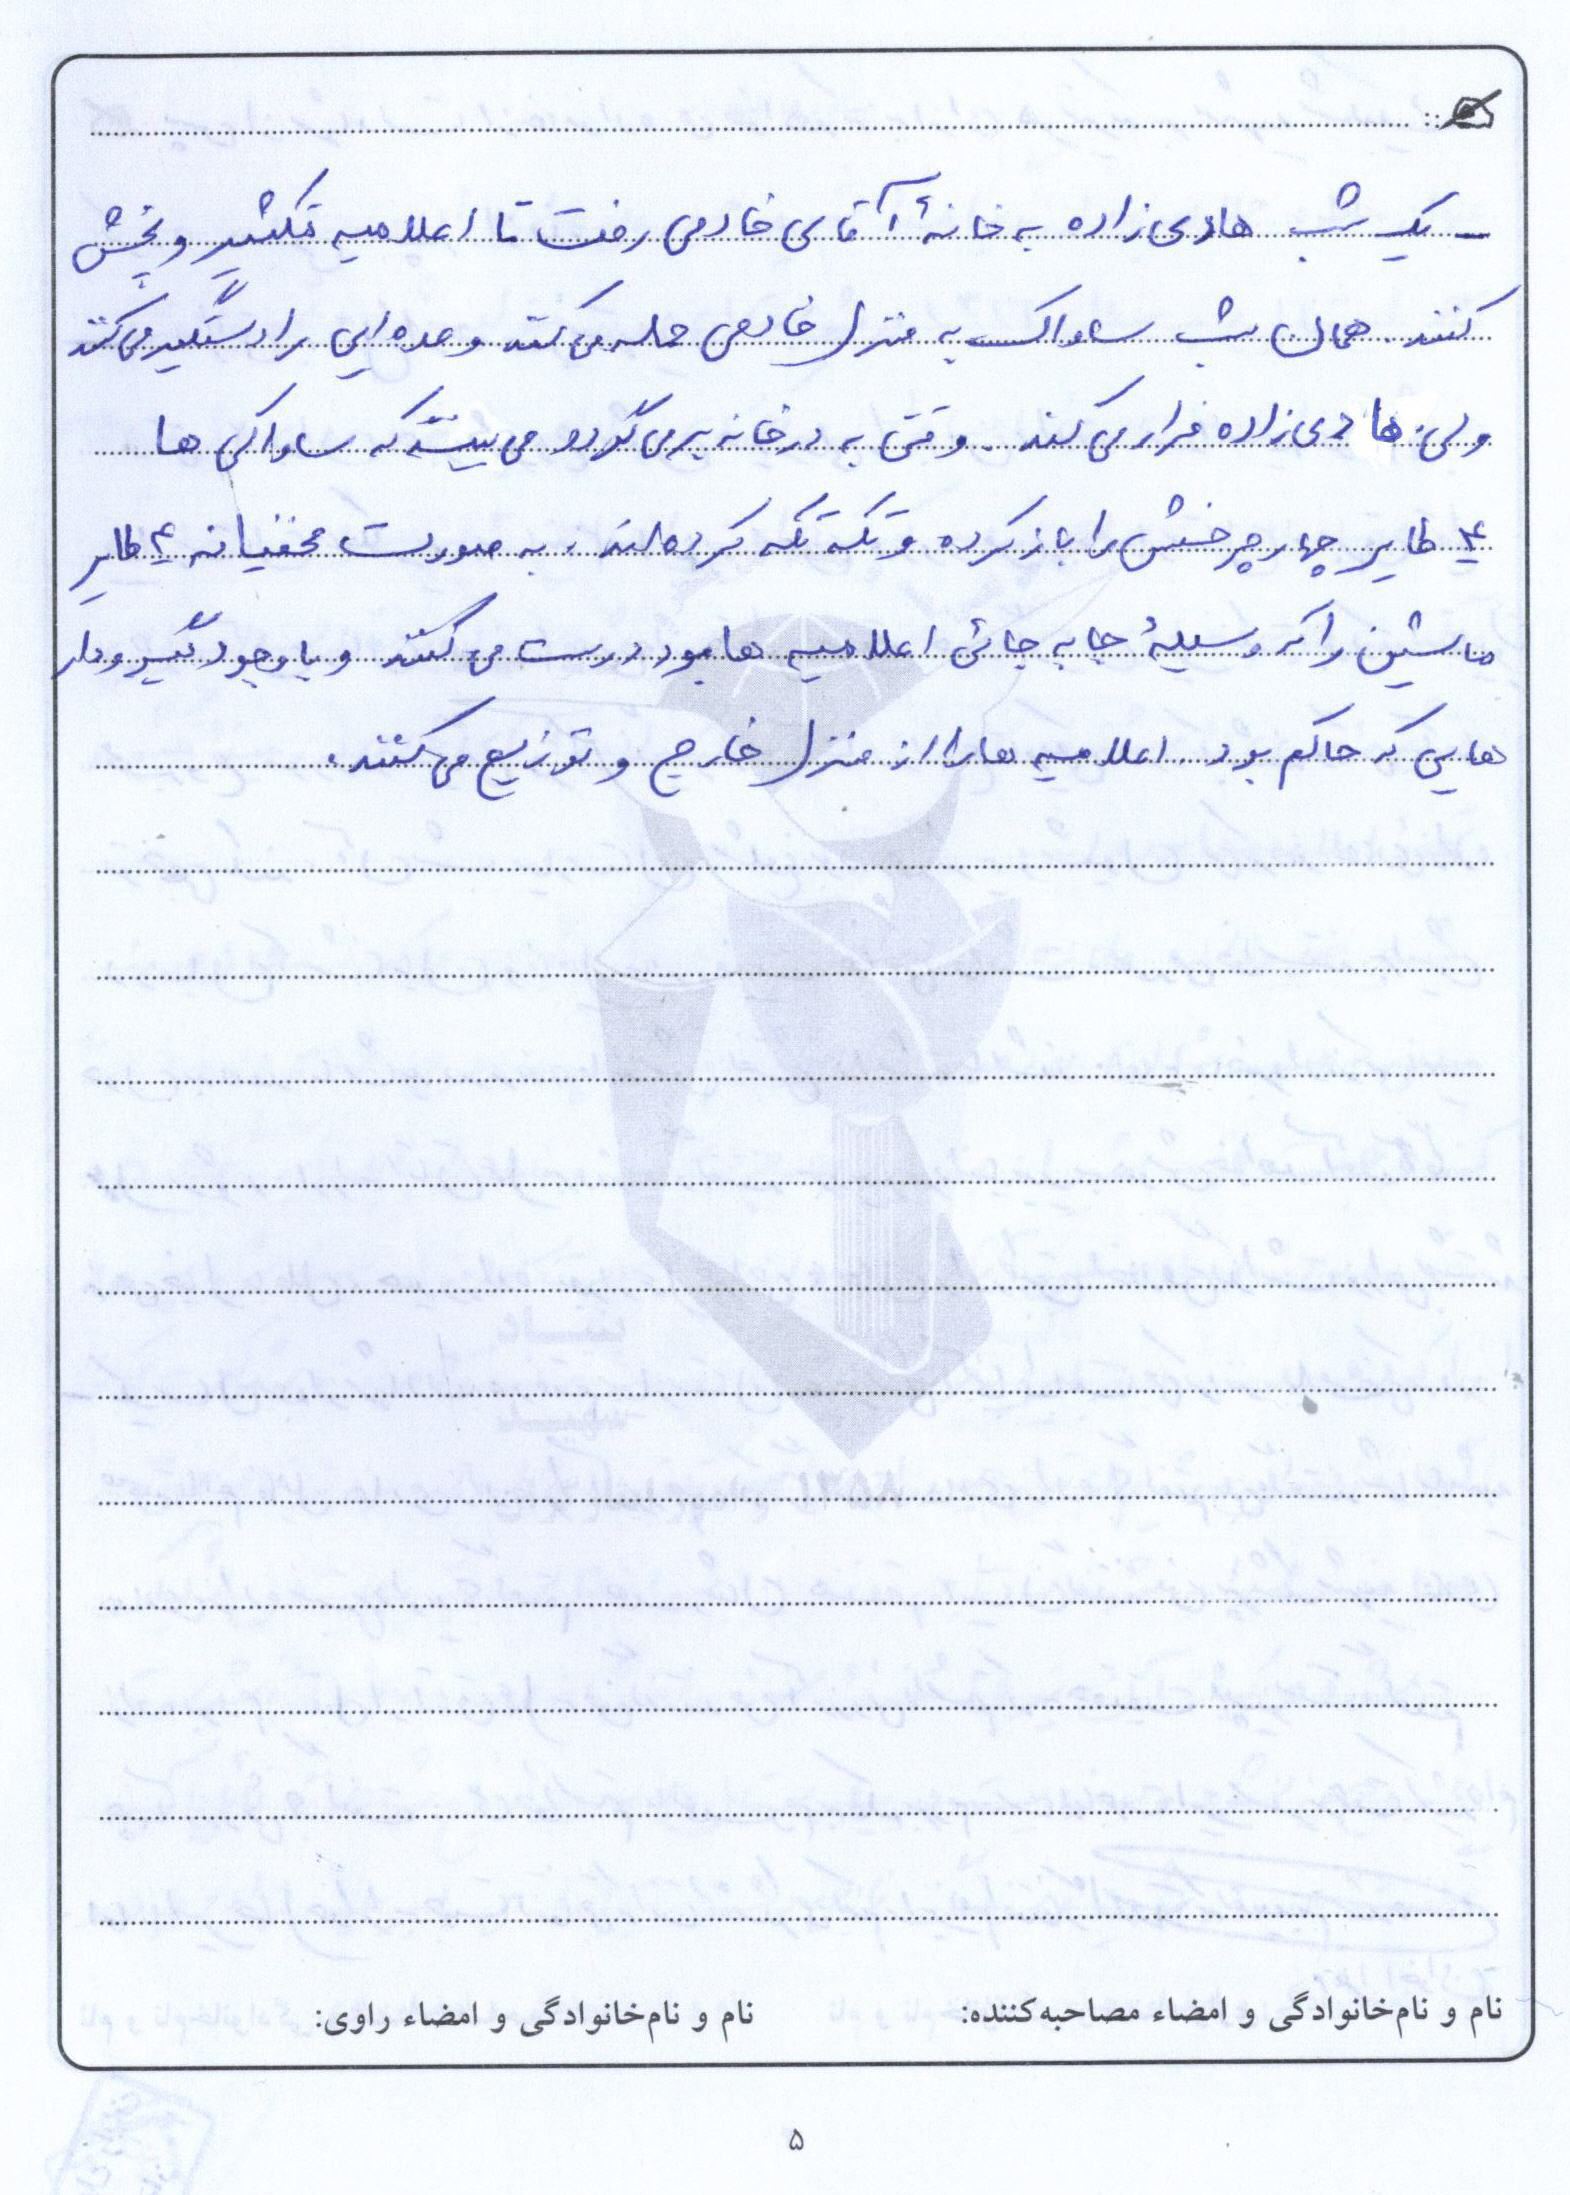 - یک شب هادی زاده به خانهٔ آقای خادمی رفت تا اعلامیه تکثیر و پخش
کنند. همان شب ساواک به منزل خادمی حمله می کند و عده ایی را دستگیر می کنند
ولی هادی زاده فرار می کند. وقتی به در خانه برمی گردد می بیند که ساواکی ها
۴ طایر چهار چرخش را باز کرده و تکه تکه کرده اند. به صورت مخفیانه ۴ طایر
ماشین را که وسیلهٔ جا به جائی اعلامیه ها بود درست می کنند و با وجود گیر و دار
هایی که حاکم بود. اعلامیه ها را از منزل خارج و توزیع می کنند.
نام و نام‌خانوادگی و امضاء مصاحبه‌کننده: نام و نام‌خانوادگی و امضاء راوی:
۵